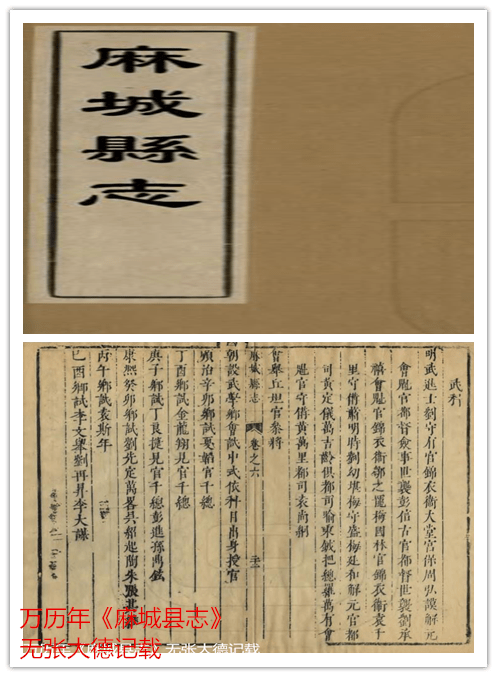 麻城縣志
武科
明武進士劉守有官錦衣衞大堂宮保周弘謨解元
會魁官都督僉事世襲彭信古官都督世襲劉承
禧會魁官錦衣衞鄒之
梅國林官錦衣衞袁于
里守備蕭明時劉幼堪梅守盛梅延和解元官都
司黃定儀萬古齡俱都司喻東
把總羅萬有會
魁官守備黃萬里都司袁尚
會舉丘坦官叅將
麻城縣志
卷之六
朝設武學鄉會試中式依科目出身授官
順治辛卯鄉試夏
官千總
丁酉鄉試金龍翔見官千總
庚子鄉試丁良
見官千總彭進孫禹鉉
康熙癸卯鄉試劉先定萬畧吳紹起閻
丙午鄉試袁斯年
己酉鄉試李文
劉再昇李大謨
万历年《麻城县志》
无张大德记载
无张大德记载